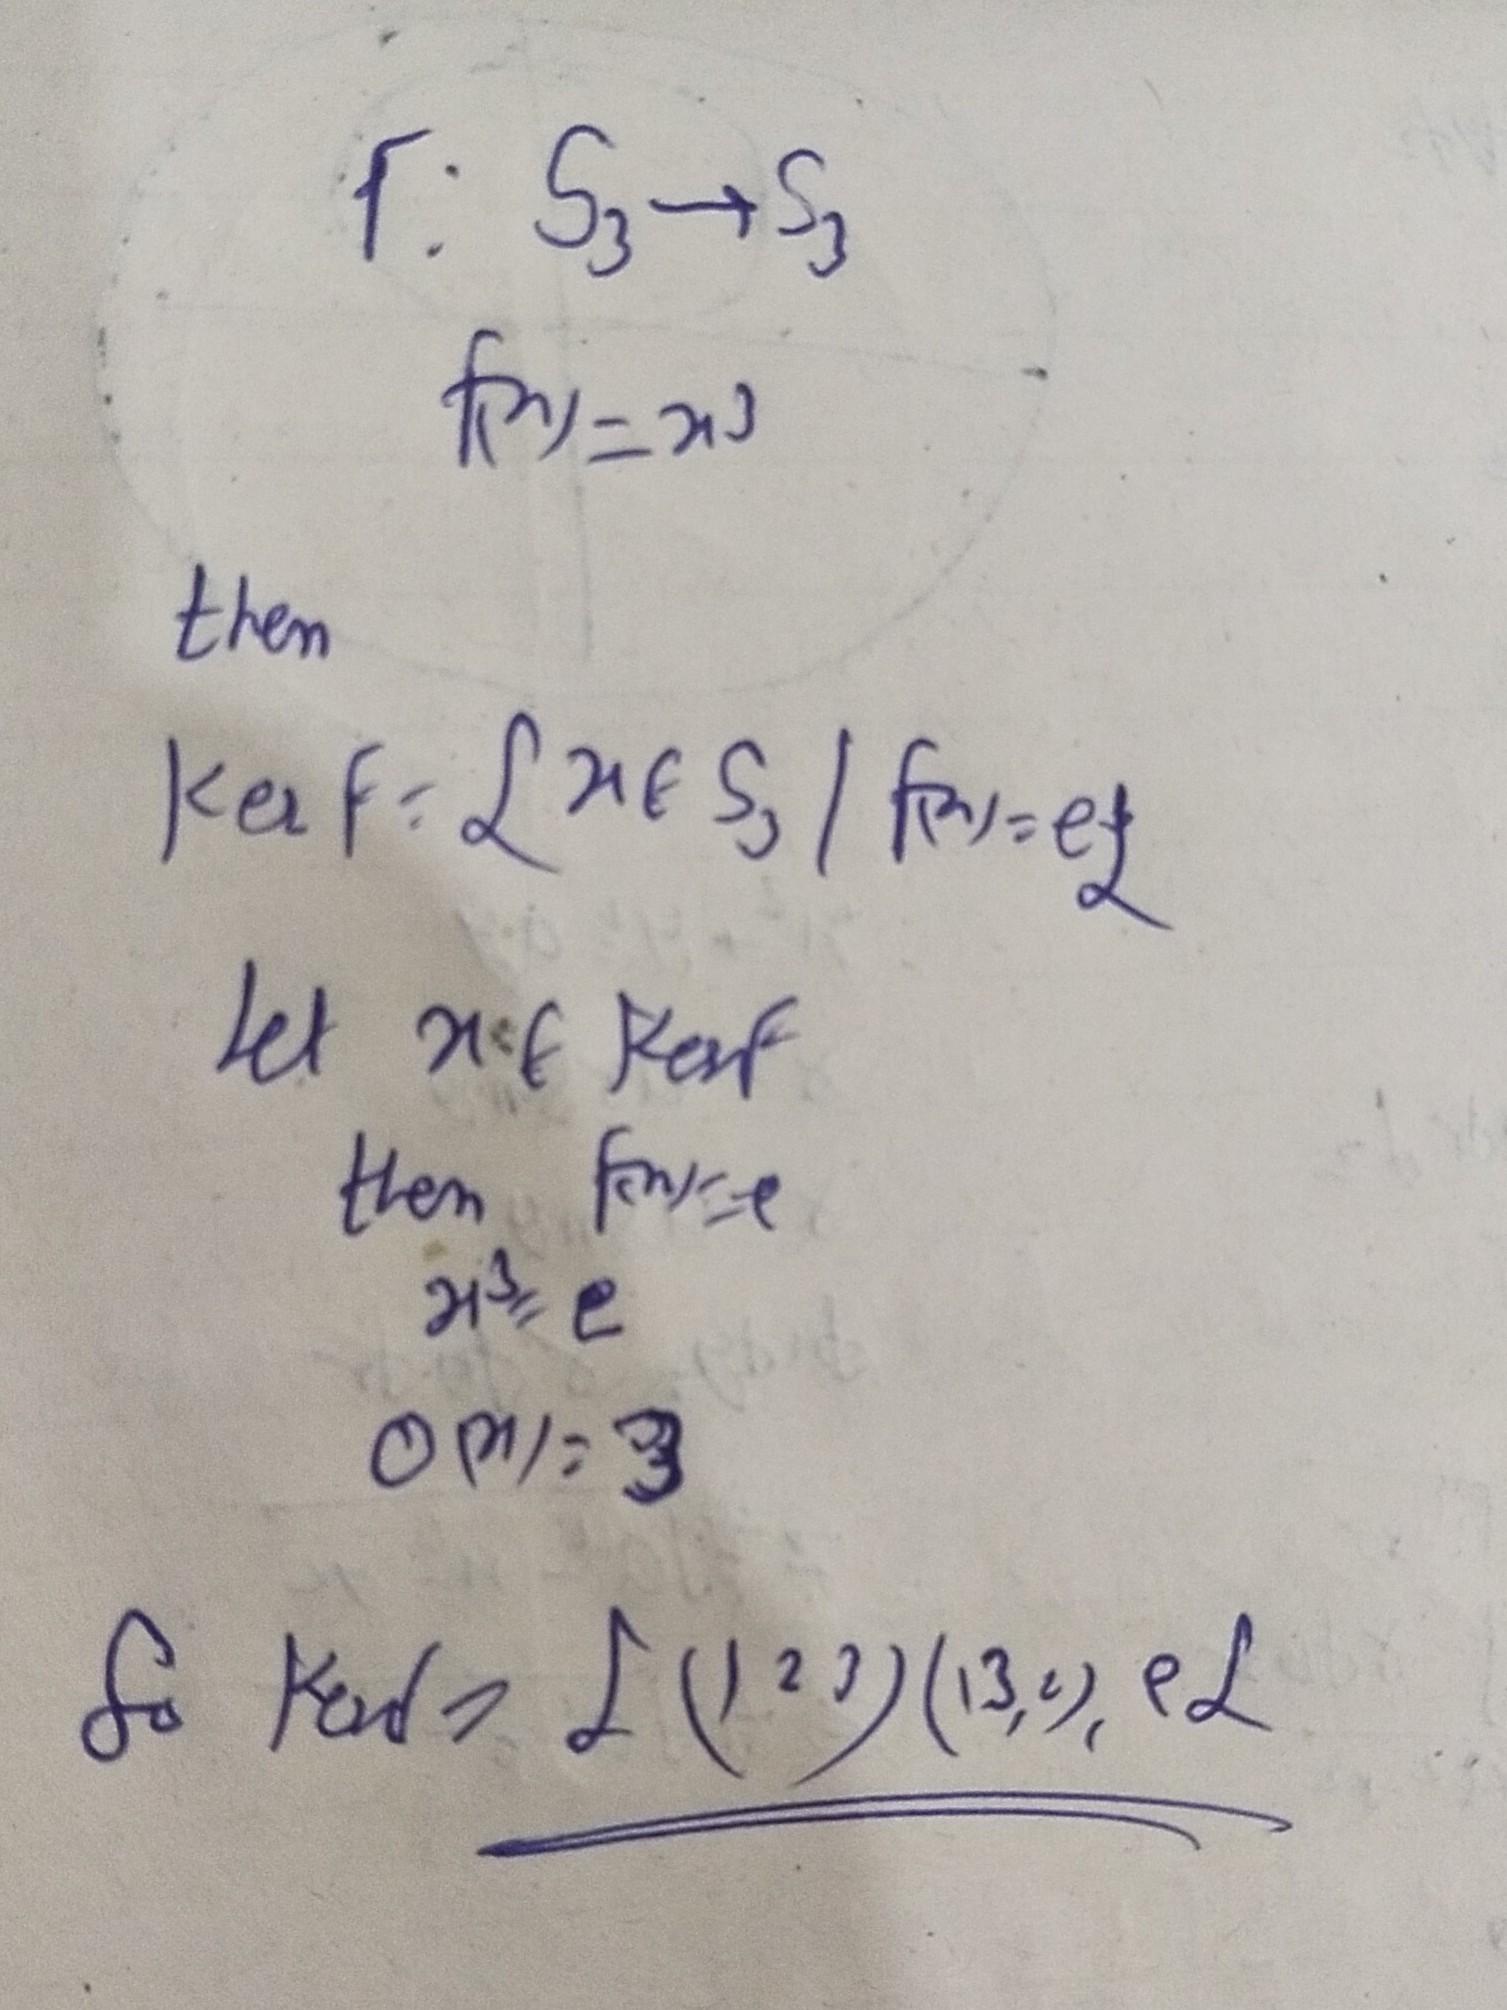 f: S₃→S₃
f(x)=x³
then
Ker f= {x∈S₃ / f(x)=e}
Let x∈ Kerf
then f(x)=e
x³=e
O(x)=3
So Kerf= {(1 2 3)(1 3,2), e}